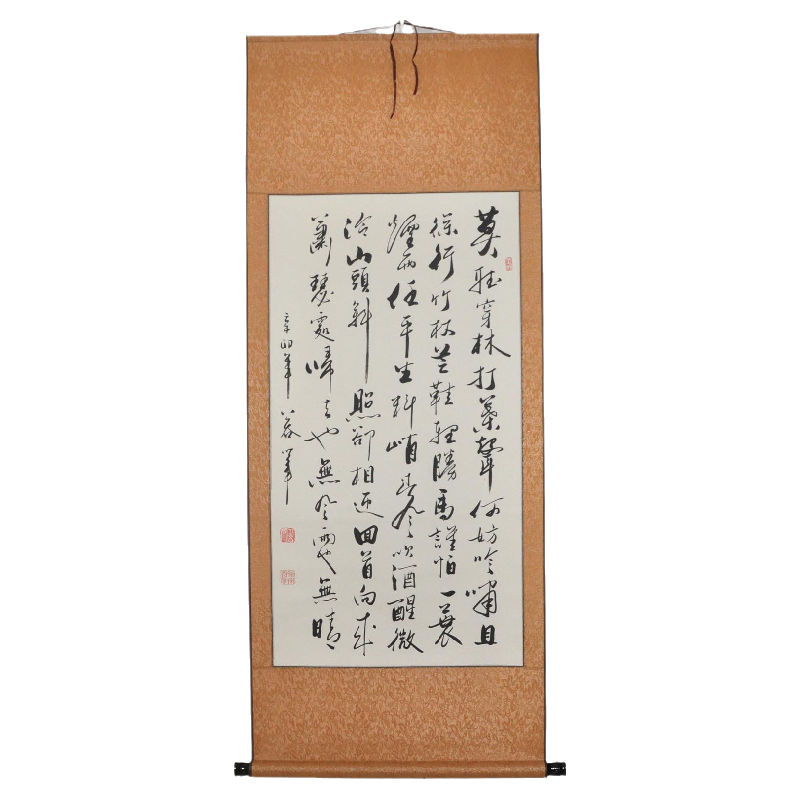 莫聽穿林打葉聲何妨吟嘯且
徐行竹杖芒鞋輕勝馬誰怕一蓑
煙雨任平生料峭春風吹酒醒微
冷山頭斜照卻相迎回首向來
蕭瑟處歸去也無風雨也無晴
辛卯年